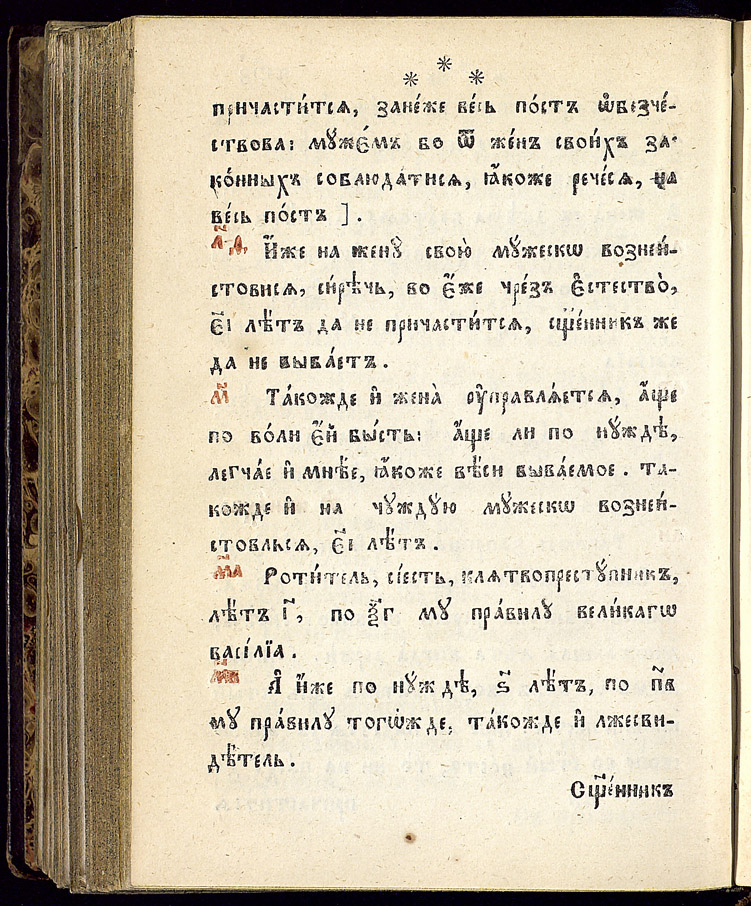 * * *
причасти́тсѧ, занѐже ве́сь по́стъ ѡ҆безче́-
ствова: мꙋже́мъ бо ѿ же́нъ свои́хъ за-
ко́нныхъ соблюда́тисѧ, ꙗ҆́коже рече́сѧ, на
ве́сь по́стъ ].
л҃ѳ. И҆́же на женꙋ̀ свою̀ мꙋ́жескѡ возней-
стовисѧ, си́рѣчь, во є҆́же чре́зъ є҆стество̀,
є҃і лѣ́тъ да не причасти́тсѧ, сщ҃е́нникъ же
да не быва́етъ.
м҃ Та́кожде и҆ жена̀ ᲂу҆правлѧ́етсѧ, а҆́ще
по во́ли є҆́й бы́сть: а҆́ще ли по нꙋ́ждѣ,
легча́е и҆ мнѣ́е, ꙗ҆́коже вѣ́си быва́емое. та-
кожде и҆ на чꙋждꙋю мꙋ́жескѡ возней-
стовльсѧ, є҃і лѣ́тъ.
м҃а Роти́тель, сіе́сть, клѧтвопрестꙋ́пникъ,
лѣ́тъ і҃, по ѯ҃г мꙋ пра́вилꙋ вели́кагѡ
васі́лїа.
м҃в А҆ и҆́же по нꙋ́ждѣ, ѕ҃ лѣ́тъ, по п҃в
мꙋ пра́вилꙋ тогѡ́жде, та́кожде и҆ лжесви-
дѣ́тель.
Сщ҃е́нникъ